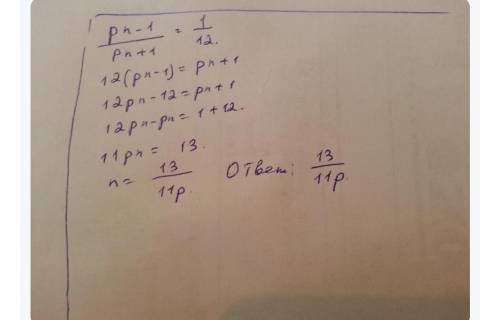 pn-1/pn+1 = 1/12.
12(pn-1)=pn+1
12pn-12=pn+1
12pn-pn=1+12.
11pn= 13.
n= 13/11p. Ответ: 13/11p.